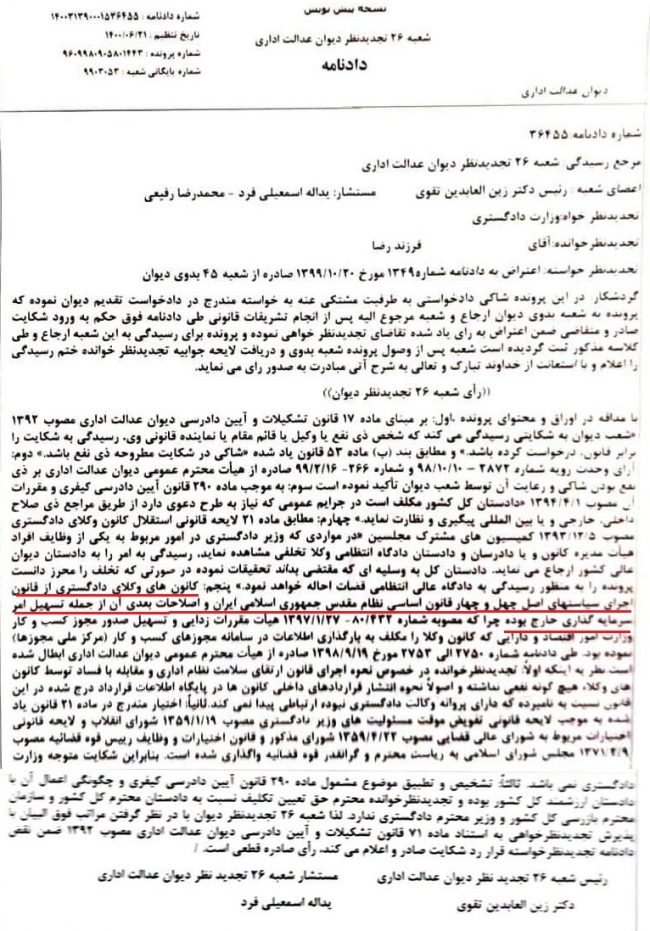 نسخه پیش نویس
شماره دادنامه : ۱۴۰۰۳۱۳۹۰۰۰۱۵۳۶۴۵۵
تاریخ تنظیم : ۱۴۰۰/۰۶/۲۱
شماره پرونده : ۹۶۰۹۹۸۰۹۰۵۸۰۱۴۴۳
شماره بایگانی شعبه : ۹۹۰۳۰۵۳
شعبه ۲۶ تجدیدنظر دیوان عدالت اداری
دادنامه
دیوان عدالت اداری
شماره دادنامه:۳۶۴۵۵
مرجع رسیدگی: شعبه ۲۶ تجدیدنظر دیوان عدالت اداری
اعضای شعبه : رئیس دکتر زین العابدین تقوی مستشار: یداله اسمعیلی فرد - محمدرضا رفیعی
تجدیدنظر خواه:وزارت دادگستری
تجدیدنظرخوانده:آقای فرزند رضا
تجدیدنظر خواسته: اعتراض به دادنامه شماره۱۳۴۹ مورخ ۱۳۹۹/۱۰/۲۰ صادره از شعبه ۴۵ بدوی دیوان
گردشکار: در این پرونده شاکی دادخواستی به طرفیت مشتکی عنه به خواسته مندرج در دادخواست تقدیم دیوان نموده که
پرونده به شعبه بدوی دیوان ارجاع و شعبه مرجوع الیه پس از انجام تشریفات قانونی طی دادنامه فوق حکم به ورود شکایت
صادر و متقاضی ضمن اعتراض به رای یاد شده تقاضای تجدیدنظر خواهی نموده و پرونده برای رسیدگی به این شعبه ارجاع و طی
کلاسه مذکور ثبت گردیده است شعبه پس از وصول پرونده شعبه بدوی و دریافت لایحه جوابیه تجدیدنظر خوانده ختم رسیدگی
را اعلام و با استعانت از خداوند تبارک و تعالی به شرح آتی مبادرت به صدور رای می نماید.
((رأی شعبه ۲۶ تجدیدنظر دیوان))
با مداقه در اوراق و محتوای پرونده .اول: بر مبنای ماده ۱۷ قانون تشکیلات و آیین دادرسی دیوان عدالت اداری مصوب ۱۳۹۲
«شعب دیوان به شکایتی رسیدگی می کند که شخص ذی نفع یا وکیل یا قائم مقام یا نماینده قانونی وی، رسیدگی به شکایت را
برابر قانون، درخواست کرده باشد.» و مطابق بند (ب) ماده ۵۳ قانون یاد شده «شاکی در شکایت مطروحه ذی نفع باشد.» دوم:
آرای وحدت رویه شماره ۲۸۷۲ - ۹۸/۱۰/۱۰ و شماره ۲۶۶- ۹۹/۲/۱۶ صادره از هیأت محترم عمومی دیوان عدالت اداری بر ذی
نفع بودن شاکی و رعایت آن توسط شعب دیوان تأکید نموده است سوم: به موجب ماده ۲۹۰ قانون آیین دادرسی کیفری و مقررات
آن مصوب ۱۳۹۴/۴/۱ «دادستان کل کشور مکلف است در جرایم عمومی که نیاز به طرح دعوی دارد از طریق مراجع ذی صلاح
داخلی، خارجی و یا بین المللی پیگیری و نظارت نماید.» چهارم: مطابق ماده ۲۱ لایحه قانونی استقلال کانون وکلای دادگستری
مصوب ۱۳۳۳/۱۲/۵ کمیسیون های مشترک مجلسین «در مواردی که وزیر دادگستری در امور مربوط به یکی از وظایف افراد
هیأت مدیره کانون و یا دادرسان و دادستان دادگاه انتظامی وکلا تخلفی مشاهده نماید، رسیدگی به امر را به دادستان دیوان
عالی کشور ارجاع می نماید. دادستان کل به وسیله ای که مقتضی بداند تحقیقات نموده در صورتی که تخلف را محرز دانست
پرونده را به منظور رسیدگی به دادگاه عالی انتظامی قضات احاله خواهد نمود.» پنجم: کانون های وکلای دادگستری از قانون
اجرای سیاستهای اصل چهل و چهار قانون اساسی نظام مقدس جمهوری اسلامی ایران و اصلاحات بعدی آن از جمله تسهیل امر
سرمایه گذاری خارج بوده چرا که مصوبه شماره ۸۰/۴۳۲- ۱۳۹۷/۱/۲۷ هیأت مقررات زدایی و تسهیل صدور مجوز کسب و کار
وزارت امور اقتصاد و دارایی که کانون وکلا را مکلف به بارگذاری اطلاعات در سامانه مجوزهای کسب و کار (مرکز ملی مجوزها)
نموده بود. طی دادنامه شماره ۲۷۵۰ الی ۲۷۵۳ مورخ ۱۳۹۸/۹/۱۹ از سوی هیأت محترم عمومی دیوان عدالت اداری ابطال شده
است نظر به اینکه اولاً: تجدیدنظرخوانده در خصوص نحوه اجرای قانون ارتقای سلامت نظام اداری و مقابله با فساد توسط کانون
های وکلا، هیچ گونه نفعی نداشته و اصولاً نحوه انتشار قراردادهای داخلی کانون ها در پایگاه اطلاعات قرارداد درج شده در این
قانون نسبت به نامبرده که دارای پروانه وکالت دادگستری نبوده ارتباطی پیدا نمی کند.ثانیاً: اختیار مندرج در ماده ۲۱ قانون یاد
شده به موجب لایحه قانونی تفویض موقت مسئولیت های وزیر دادگستری مصوب ۱۳۵۹/۱/۱۹ شورای انقلاب و لایحه قانونی
اختیارات مربوط به شورای عالی قضایی مصوب ۱۳۵۹/۴/۲۲ شورای مذکور و قانون اختیارات و وظایف رییس قوه قضائیه مصوب
۱۳۷۱/۲/۹ مجلس شورای اسلامی به ریاست محترم و گرانقدر قوه قضائیه واگذاری شده است. بنابراین شکایت متوجه وزارت
دادگستری نمی باشد. ثالثاً: تشخیص و تطبیق موضوع مشمول ماده ۲۹۰ قانون آیین دادرسی کیفری و چگونگی اعمال آن با
دادستان ارزشمند کل کشور بوده و تجدیدنظرخوانده محترم حق تعیین تکلیف نسبت به دادستان محترم کل کشور و سازمان
محترم بازرسی کل کشور و وزیر محترم دادگستری ندارد. لذا شعبه ۲۶ تجدیدنظر دیوان با در نظر گرفتن مراتب فوق البیان با
پذیرش تجدیدنظرخواهی به استناد ماده ۷۱ قانون تشکیلات و آیین دادرسی دیوان عدالت اداری مصوب ۱۳۹۲ ضمن نقض
دادنامه تجدیدنظرخواسته قرار رد شکایت صادر و اعلام می کند، رأی صادره قطعی است. /
رئیس شعبه ۲۶ تجدید نظر دیوان عدالت اداری مستشار شعبه ۲۶ تجدید نظر دیوان عدالت اداری
دکتر زین العابدین تقوی یداله اسمعیلی فرد